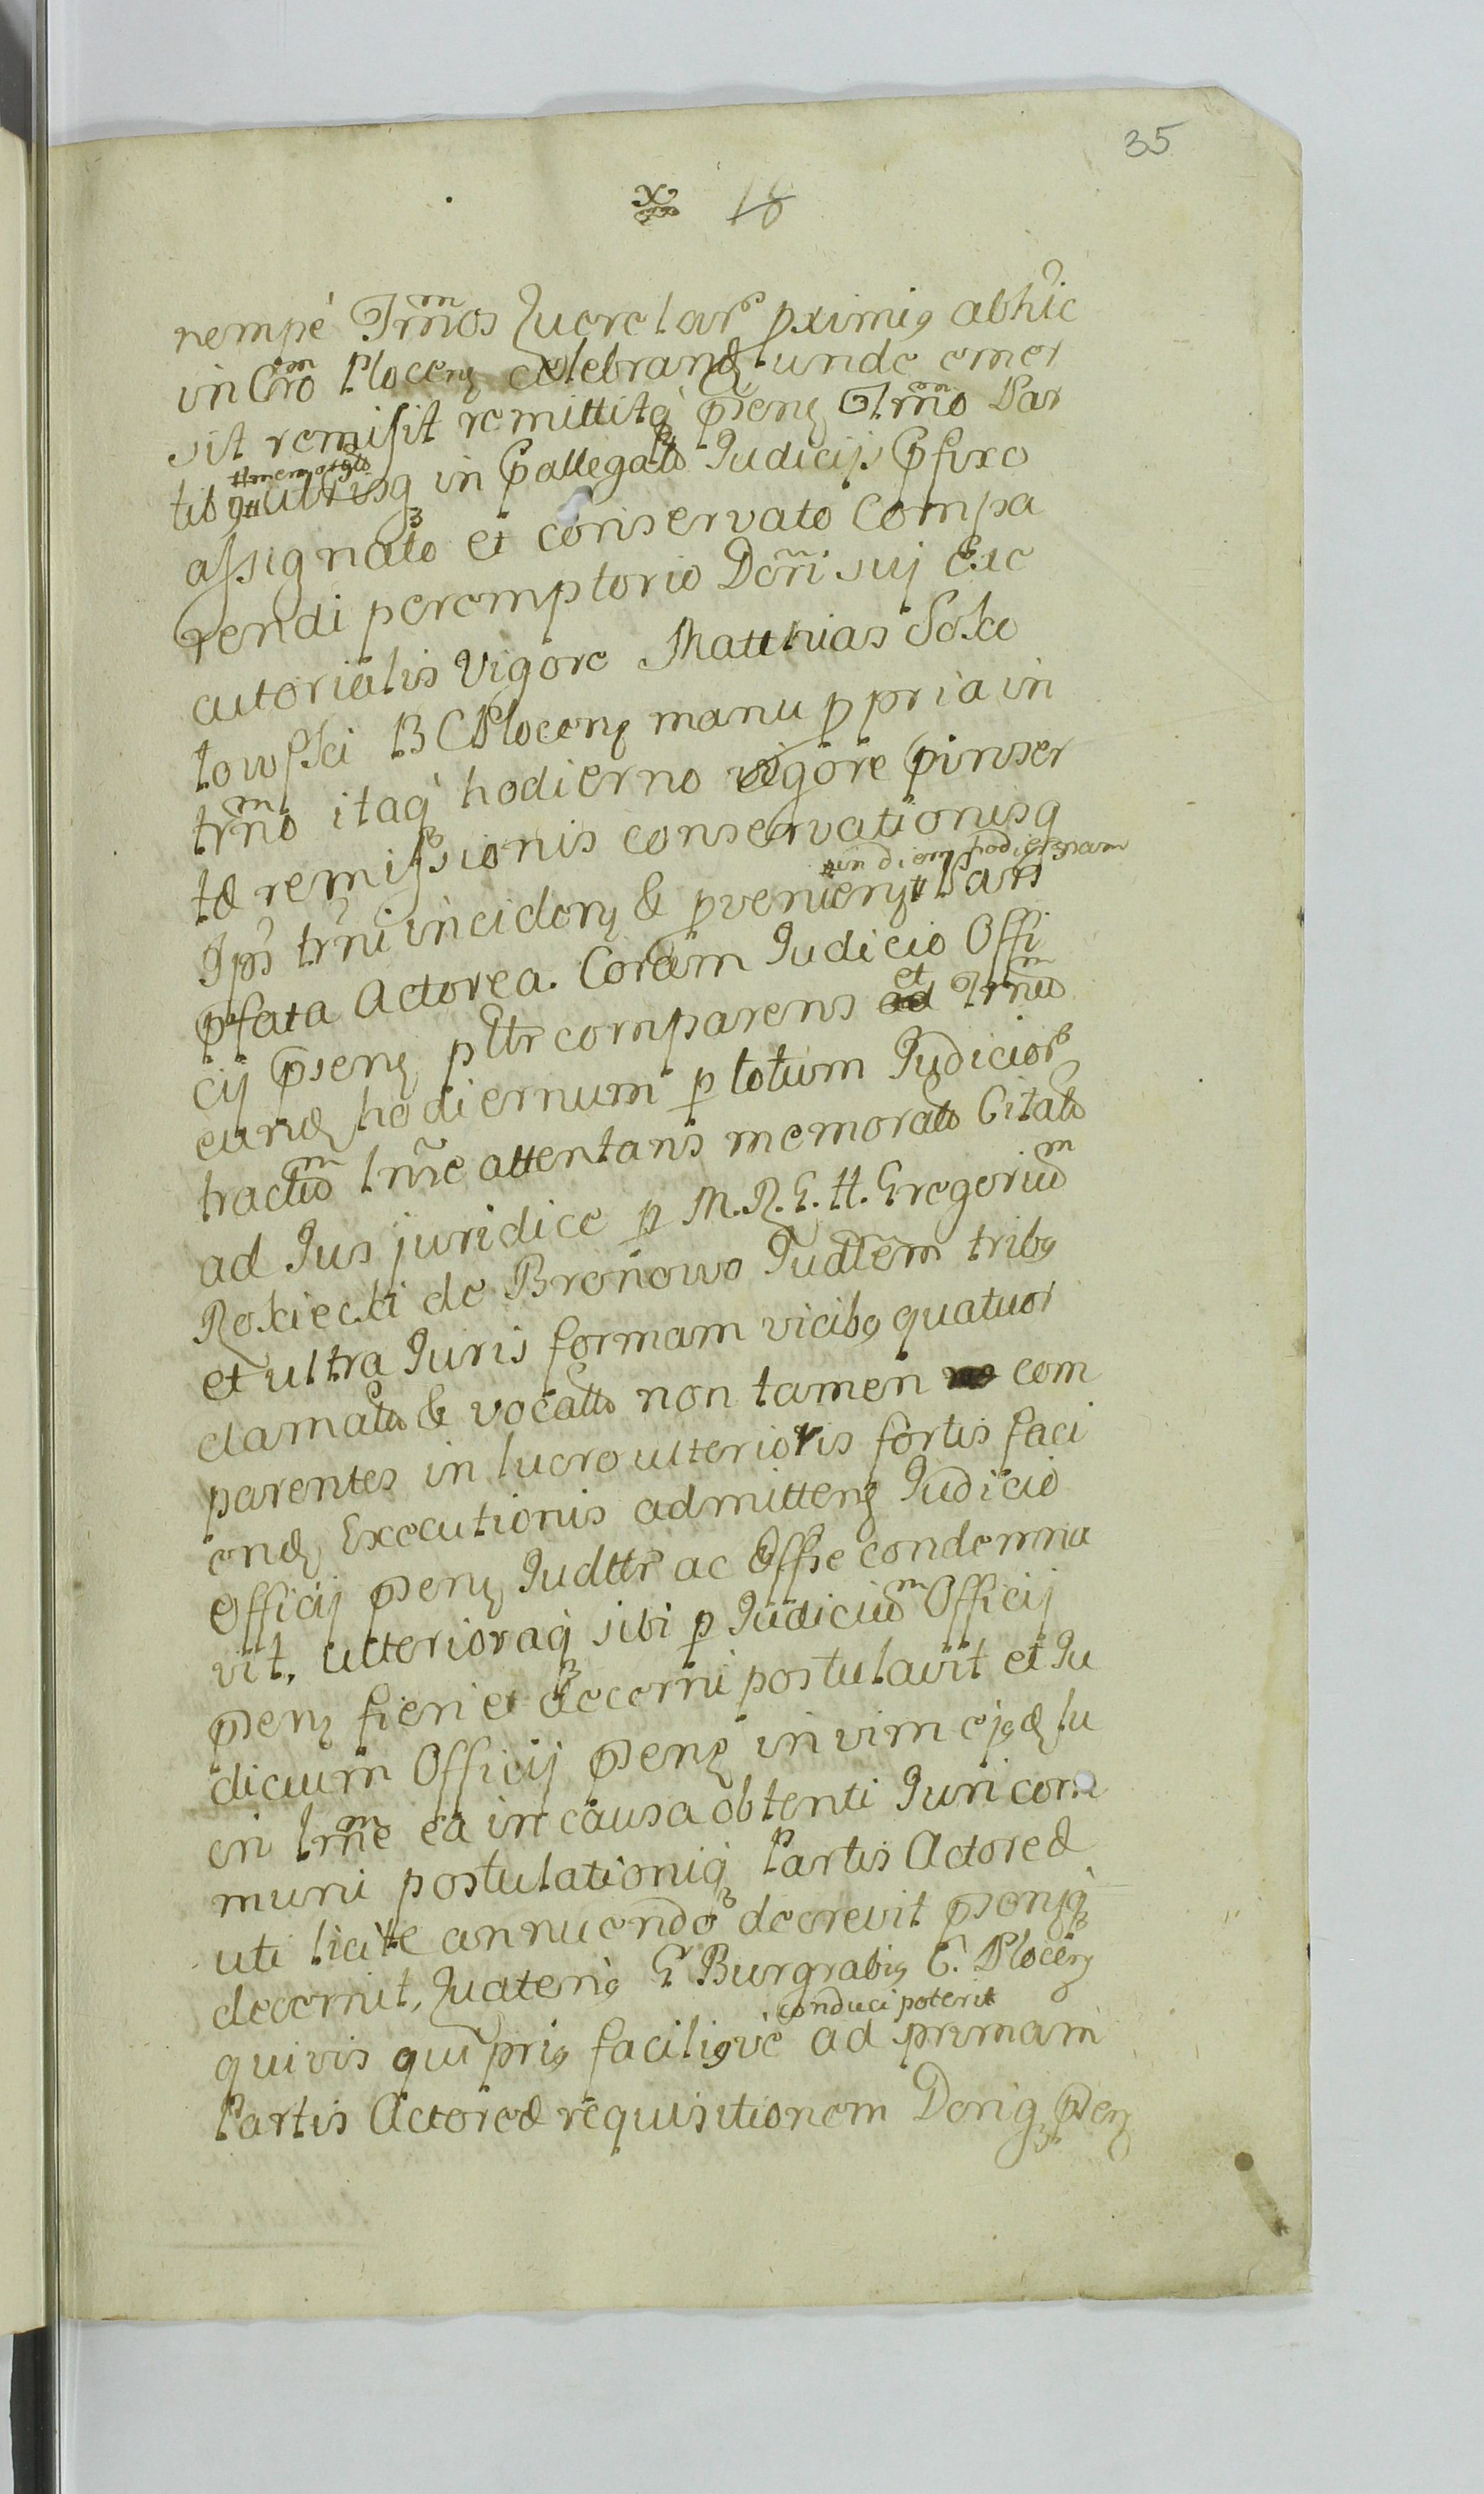 35
18
nempè Trmnos Querelar proximis abhic
in Cro Plocens celebrand unde emer
sit remisit remittitq praesens Trmno Par
memoratis
tib utrisq in praallegatis Judicijs praefixo
assignato et conservato Compa
rendi peremptorio Dcri sui Exe
cutorialis Vigore Matthias Soko
towski B C Plocens manu ppria in
trno itaq hodierno vigore prinser
tae remissionis conservationisq
in diem hodiernam
Ips trni inciden & provenien Pars
prfata Actorea. Coram Judicio Offi
cij praesen pltr comparens et Trnu
eund hodiernum p totum Judicior
tractu trnre attentans memorato Citato
ad Jus juridice p M. R. G. H. Gregoriu
Rokiecki de Bronowo Judlem tribs
et ultra Juris formam vicibs quatuor
clamato & vocato non tamen com
parentes in lucro ulterioris fortis faci
end Executionis admitten Judicio
Officij praesen Judltr ac Offse condemna
vit, ulterioraq sibi p Judiciu Officij
praesen fieri et decerni postulavit et Ju
dicium Officij praesen in vim ejusd lu
cri trmne ea in causa obtenti Juri com
muni postulationiq Partis Actoreae
uti licitae annuendo decrevit praesentiq
decernit, Quatens G Burgrabis C. Plocens
conduci poterit
quivis qui pris facilisve ad primam
Partis Actoreae requisitionem Donis praesen